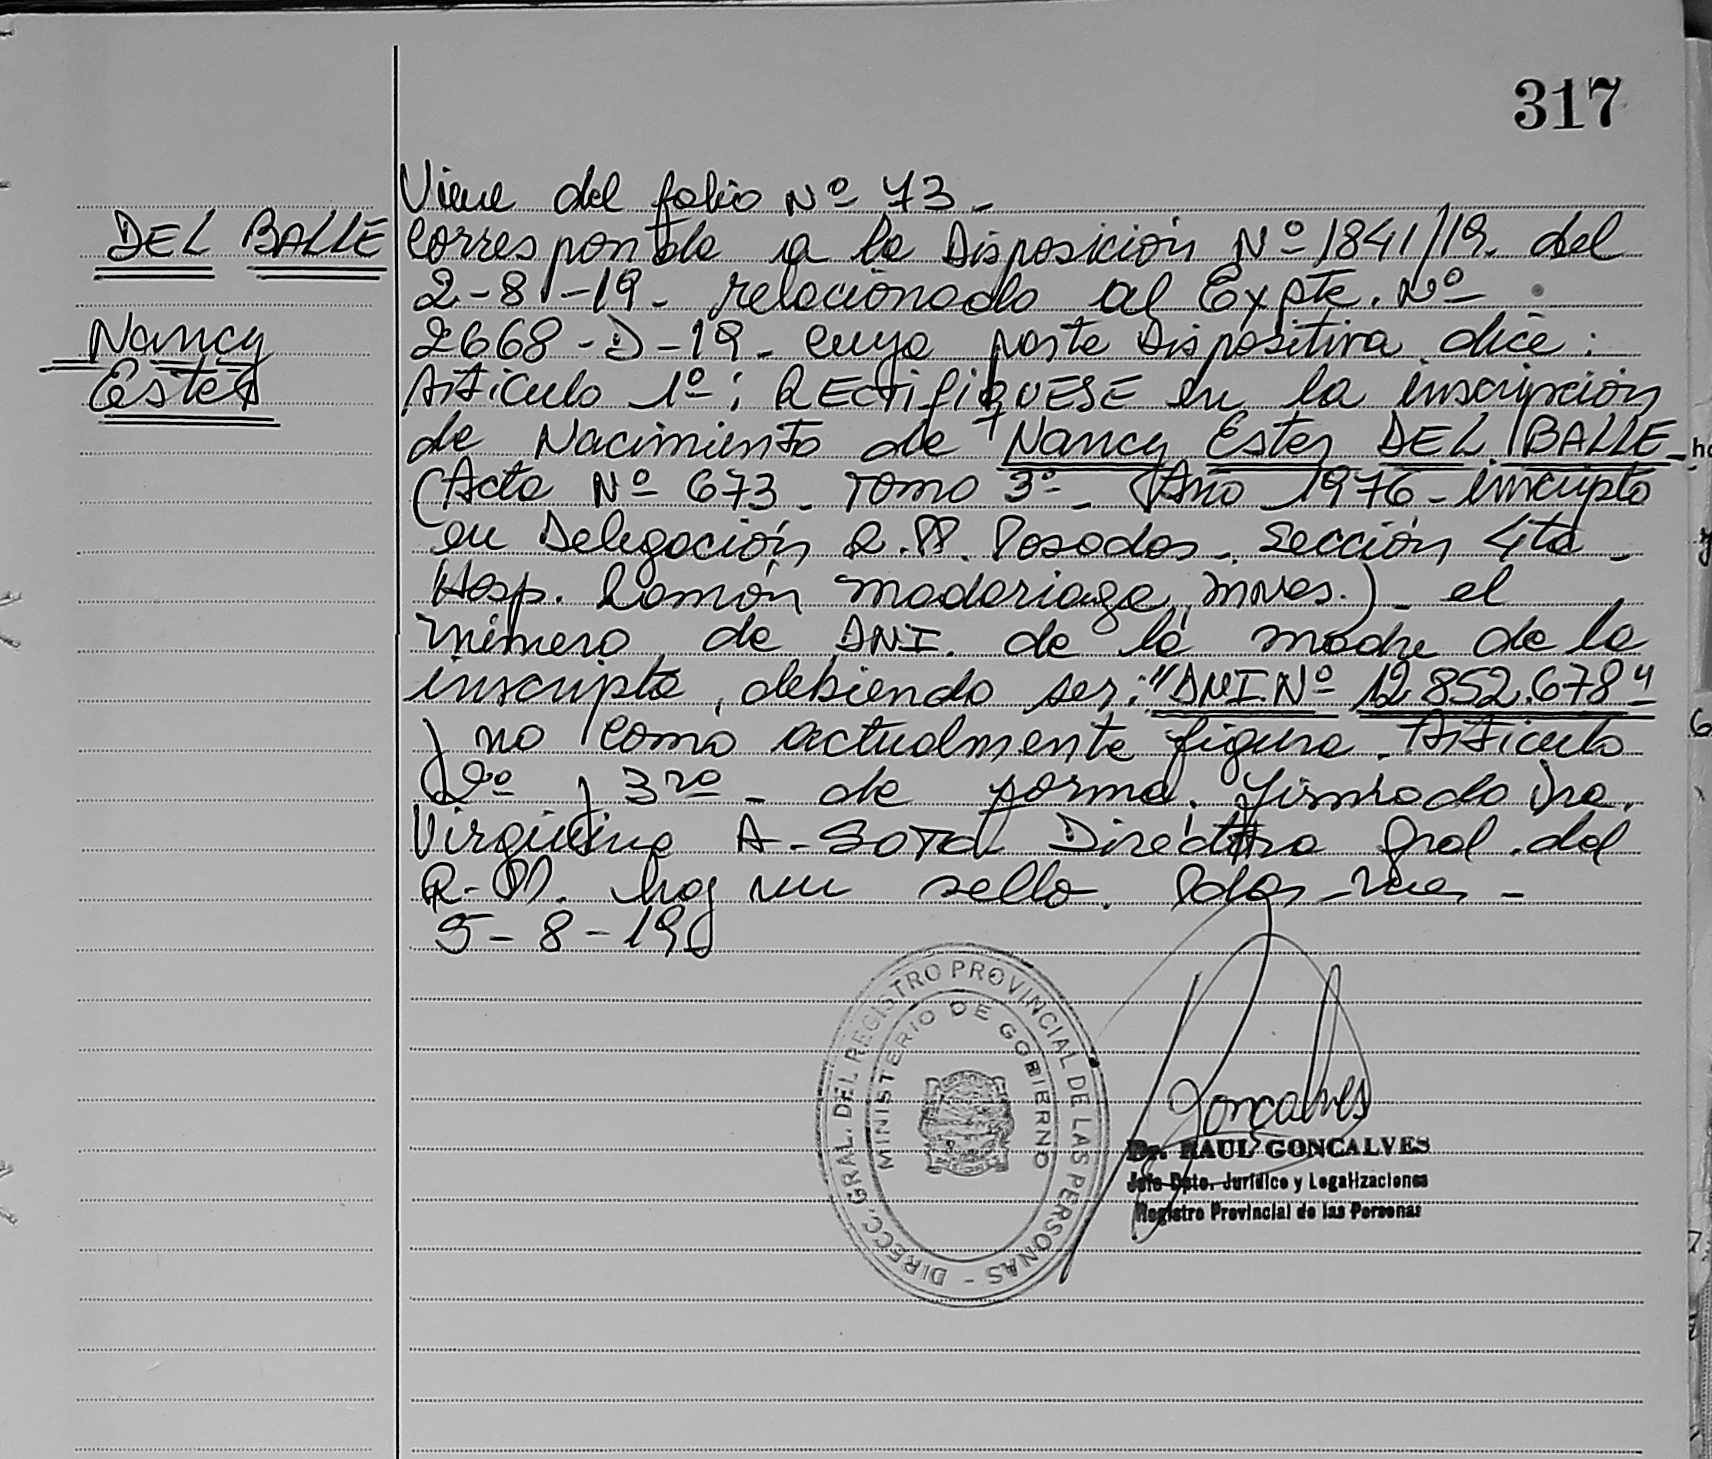 317
DEL BALLE
Nancy
Ester
Viene del folio Nº 73-
Corresponde a la Disposición Nº 1841/19. del
2-8-19- relacionado al Expte. Nº
2668-D-19- cuya parte Dispositiva dice:
Artículo 1º: RECTIFIQUESE en la inscripción
de Nacimiento de Nancy Ester DEL BALLE-
(Acta Nº 673- Tomo 3º- Año 1976- inscripta
en Delegación R.P. Posadas- Sección 4ta-
Hosp. Ramón Madariaga, Mnes.)- el
número de DNI. de la madre de la
inscripta, debiendo ser: "DNI. Nº 12.852.678"
y no como actualmente figura. Artículo
2º y 3ro- de forma. Firmado Dra.
Virginia A- SOTO Directora Gral. del
R-P. hay un sello. Pdas- Mnes-
5-8-19
DIRECC. GRAL. DEL REGISTRO PROVINCIAL DE LAS PERSONAS -
MINISTERIO DE GOBIERNO
Goncalves
Dr. RAUL GONCALVES
Jefe Dpto. Jurídico y Legalizaciones
Registro Provincial de las Personas